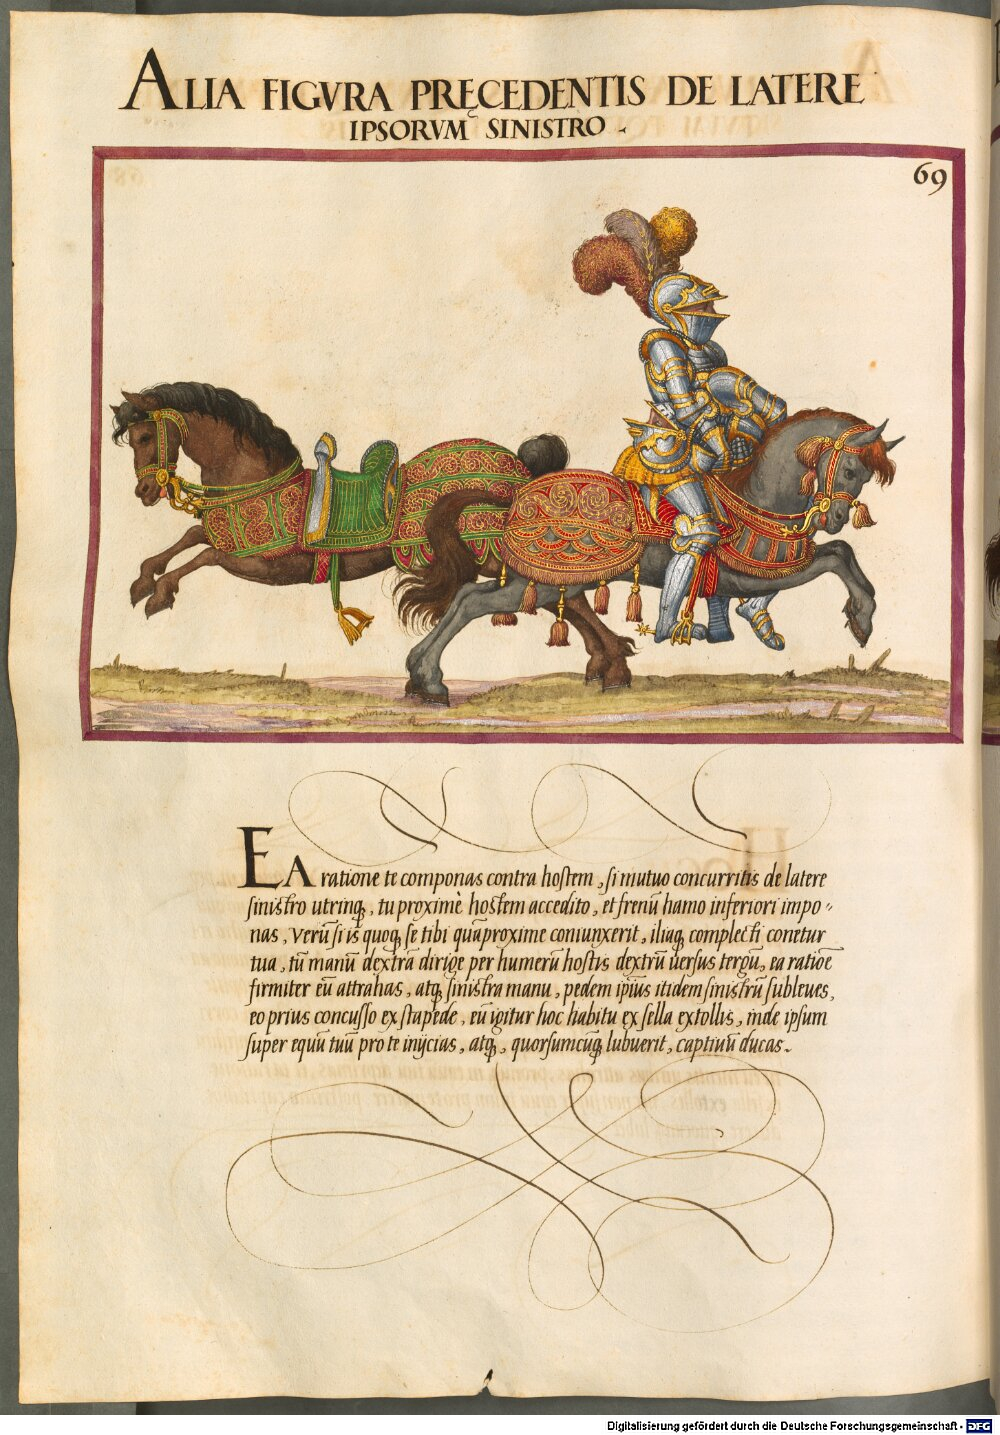 ALIA FIGVRA PRĘCEDENTIS DE LATERE
IPSORVM SINISTRO.
69
EA ratione te componas contra hostem, si mutuo concurritis de latere
sinistro utrinq, tu proximè hostem accedito, et frenū hamo inferiori impo-
nas, verū si is quoq se tibi quā proxime coniunxerit, iliaq complecti conetur
tua, tū manū dextrā dirige per humerū hostis dextrū versus tergū, ea ratiōe
firmiter eū attrahas, atq sinistra manu, pedem ipius itidem sinistrū subleues,
eo prius concusso ex stapede, eū igitur hoc habitu ex sella extollis, inde ipsum
super equū tuū pro te inijcias, atq, quorsumcūq lubuerit, captivū ducas.
Digitalisierung gefördert durch die Deutsche Forschungsgemeinschaft - DFG